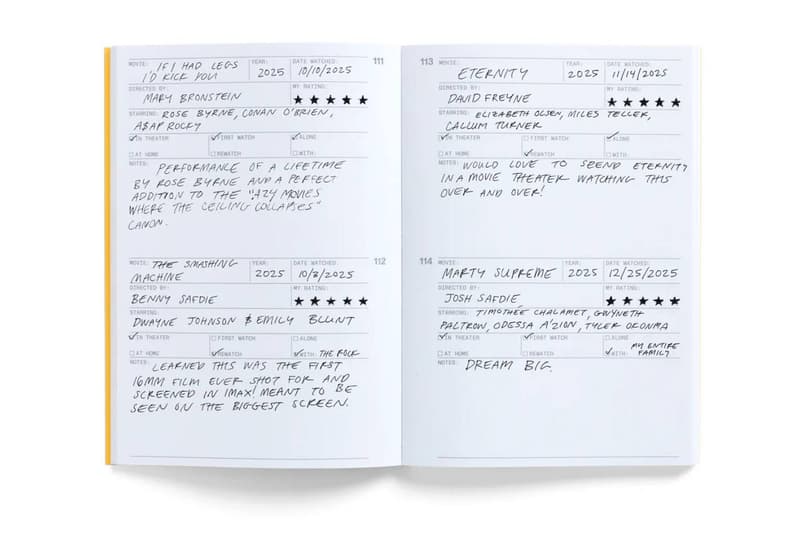 MOVIE: IF I HAD LEGS
I'D KICK YOU
YEAR: 2025
DATE WATCHED: 10/10/2025
111
DIRECTED BY:
MARY BRONSTEIN
MY RATING:
★ ★ ★ ★ ★
STARRING: ROSE BYRNE, CONAN O'BRIEN,
A$AP ROCKY
IN THEATER
FIRST WATCH
ALONE
AT HOME
REWATCH
WITH:
NOTES: PERFORMANCE OF A LIFETIME
BY ROSE BYRNE AND A PERFECT
ADDITION TO THE "A24 MOVIES
WHERE THE CEILING COLLAPSES"
CANON.
MOVIE: THE SMASHING
MACHINE
YEAR: 2025
DATE WATCHED: 10/3/2025
112
DIRECTED BY:
BENNY SAFDIE
MY RATING:
★ ★ ★ ★ ★
STARRING:
DWAYNE JOHNSON & EMILY BLUNT
IN THEATER
FIRST WATCH
ALONE
AT HOME
REWATCH
WITH: THE ROCK
NOTES: LEARNED THIS WAS THE FIRST
16MM FILM EVER SHOT FOR AND
SCREENED IN IMAX! MEANT TO BE
SEEN ON THE BIGGEST SCREEN.
113
MOVIE: ETERNITY
YEAR: 2025
DATE WATCHED: 11/14/2025
DIRECTED BY:
DAVID FREYNE
MY RATING:
★ ★ ★ ★ ★
STARRING: ELIZABETH OLSEN, MILES TELLER,
CALLUM TURNER
IN THEATER
FIRST WATCH
ALONE
AT HOME
REWATCH
WITH:
NOTES: WOULD LOVE TO SPEND ETERNITY
IN A MOVIE THEATER WATCHING THIS
OVER AND OVER!
114
MOVIE:
MARTY SUPREME
YEAR: 2025
DATE WATCHED: 12/25/2025
DIRECTED BY:
JOSH SAFDIE
MY RATING:
★ ★ ★ ★ ★
STARRING: TIMOTHÉE CHALAMET, GWYNETH
PALTROW, ODESSA A'ZION, TYLER OKONMA
IN THEATER
FIRST WATCH
ALONE
AT HOME
REWATCH
WITH: MY ENTIRE
FAMILY
NOTES: DREAM BIG.